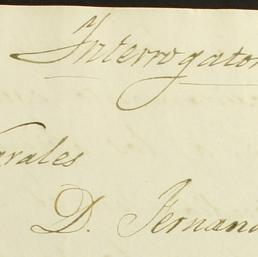 Interrogator
rales
D. Fernand